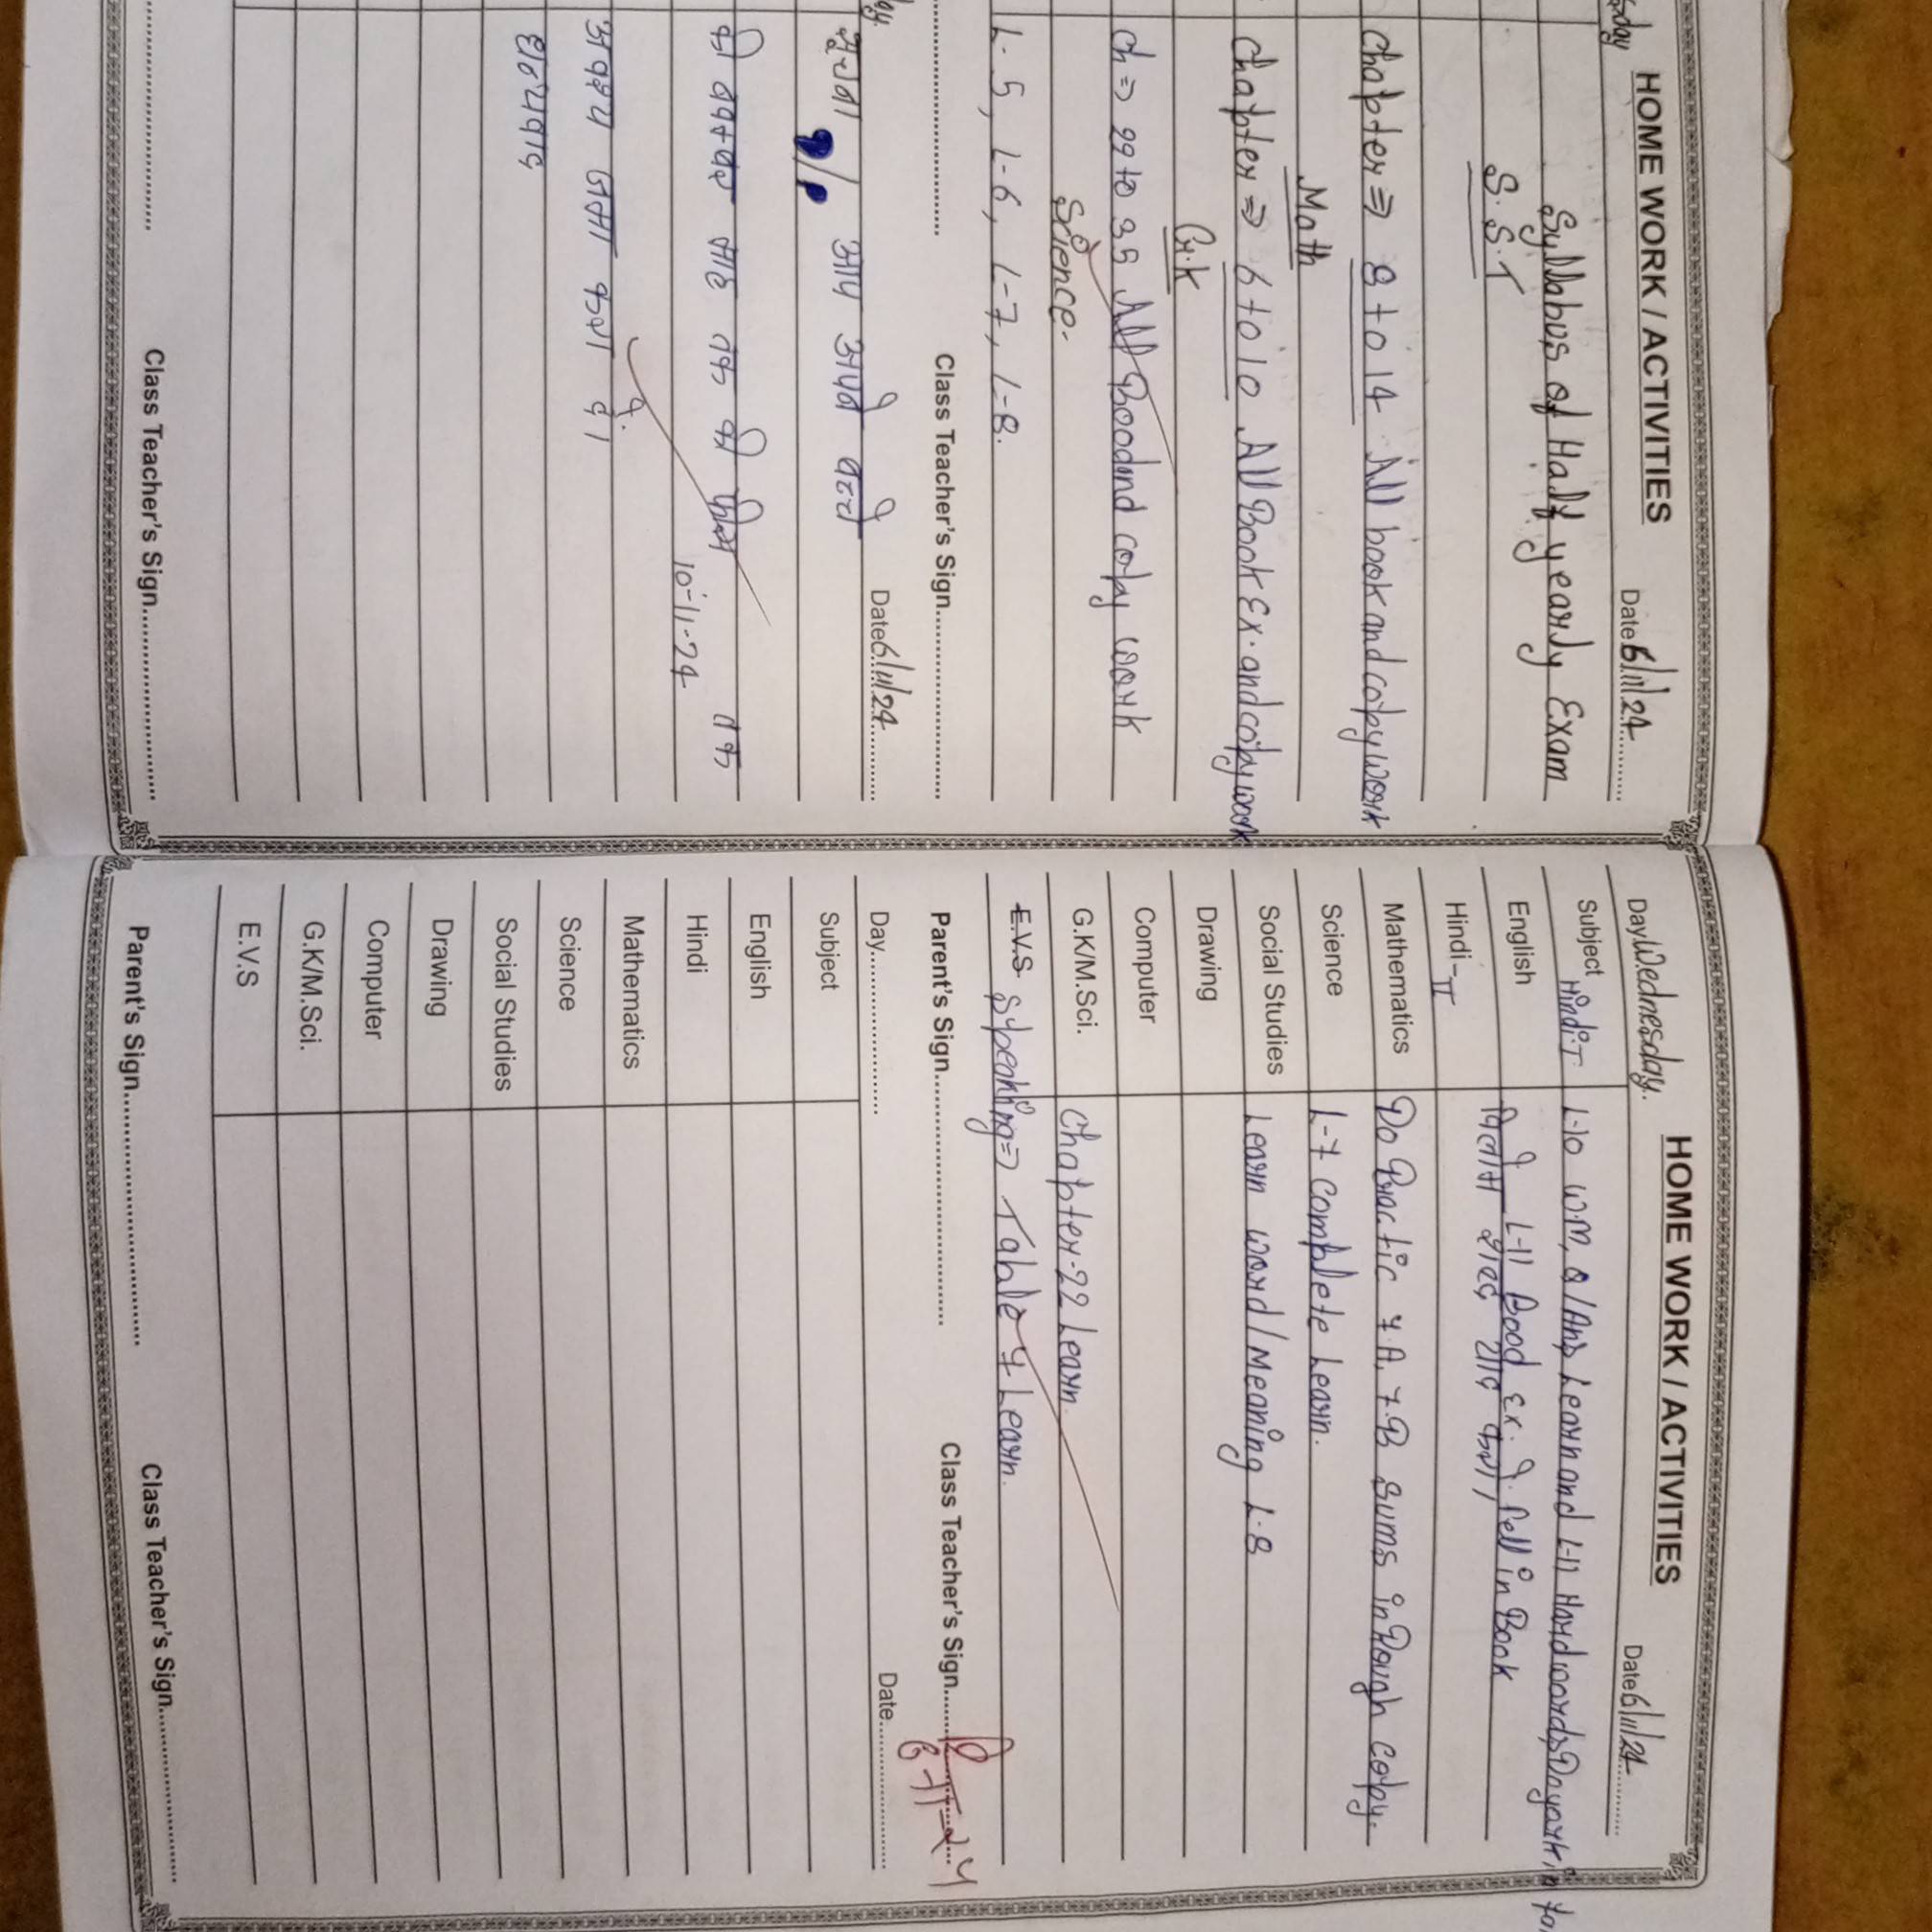 HOME WORK / ACTIVITIES
Date 6/11/24
Syllabus of Half yearly Exam
S.S.T
Chapter ⇒ 8 to 14 All book and copy work
Math
Chapter ⇒ 6 to 10 All Book Ex. and copy work
G.K
Ch ⇒ 29 to 35 All Bood and copy work
Science.
L-5, L-6, L-7, L-8.
Class Teacher's Sign
Date 6/11/24
सूचना आप अपने बच्चे
की नवम्बर माह तक की फीस तक
10-11-24
अवश्य जमा करा दें।
धन्यवाद
Class Teacher's Sign
HOME WORK / ACTIVITIES
Day Wednesday. Date 6/11/24
Subject Hindi-I L-10 W.M, Q/Ans Learn and L-11 Hard words
English L-11 Bood Ex. fell in Book
Hindi-II विलोम शब्द याद करो,
Mathematics Do Practic 7.A, 7.B sums in Rough copy.
Science L-7 Complete Learn.
Social Studies Learn word/Meaning L-8
Drawing
Computer
G.K/M.Sci. Chapter-22 Learn.
E.V.S Speaking ⇒ Table 7 Learn.
Parent's Sign Class Teacher's Sign
6-11-24
Day Date
Subject
English
Hindi
Mathematics
Science
Social Studies
Drawing
Computer
G.K/M.Sci.
E.V.S
Parent's Sign Class Teacher's Sign